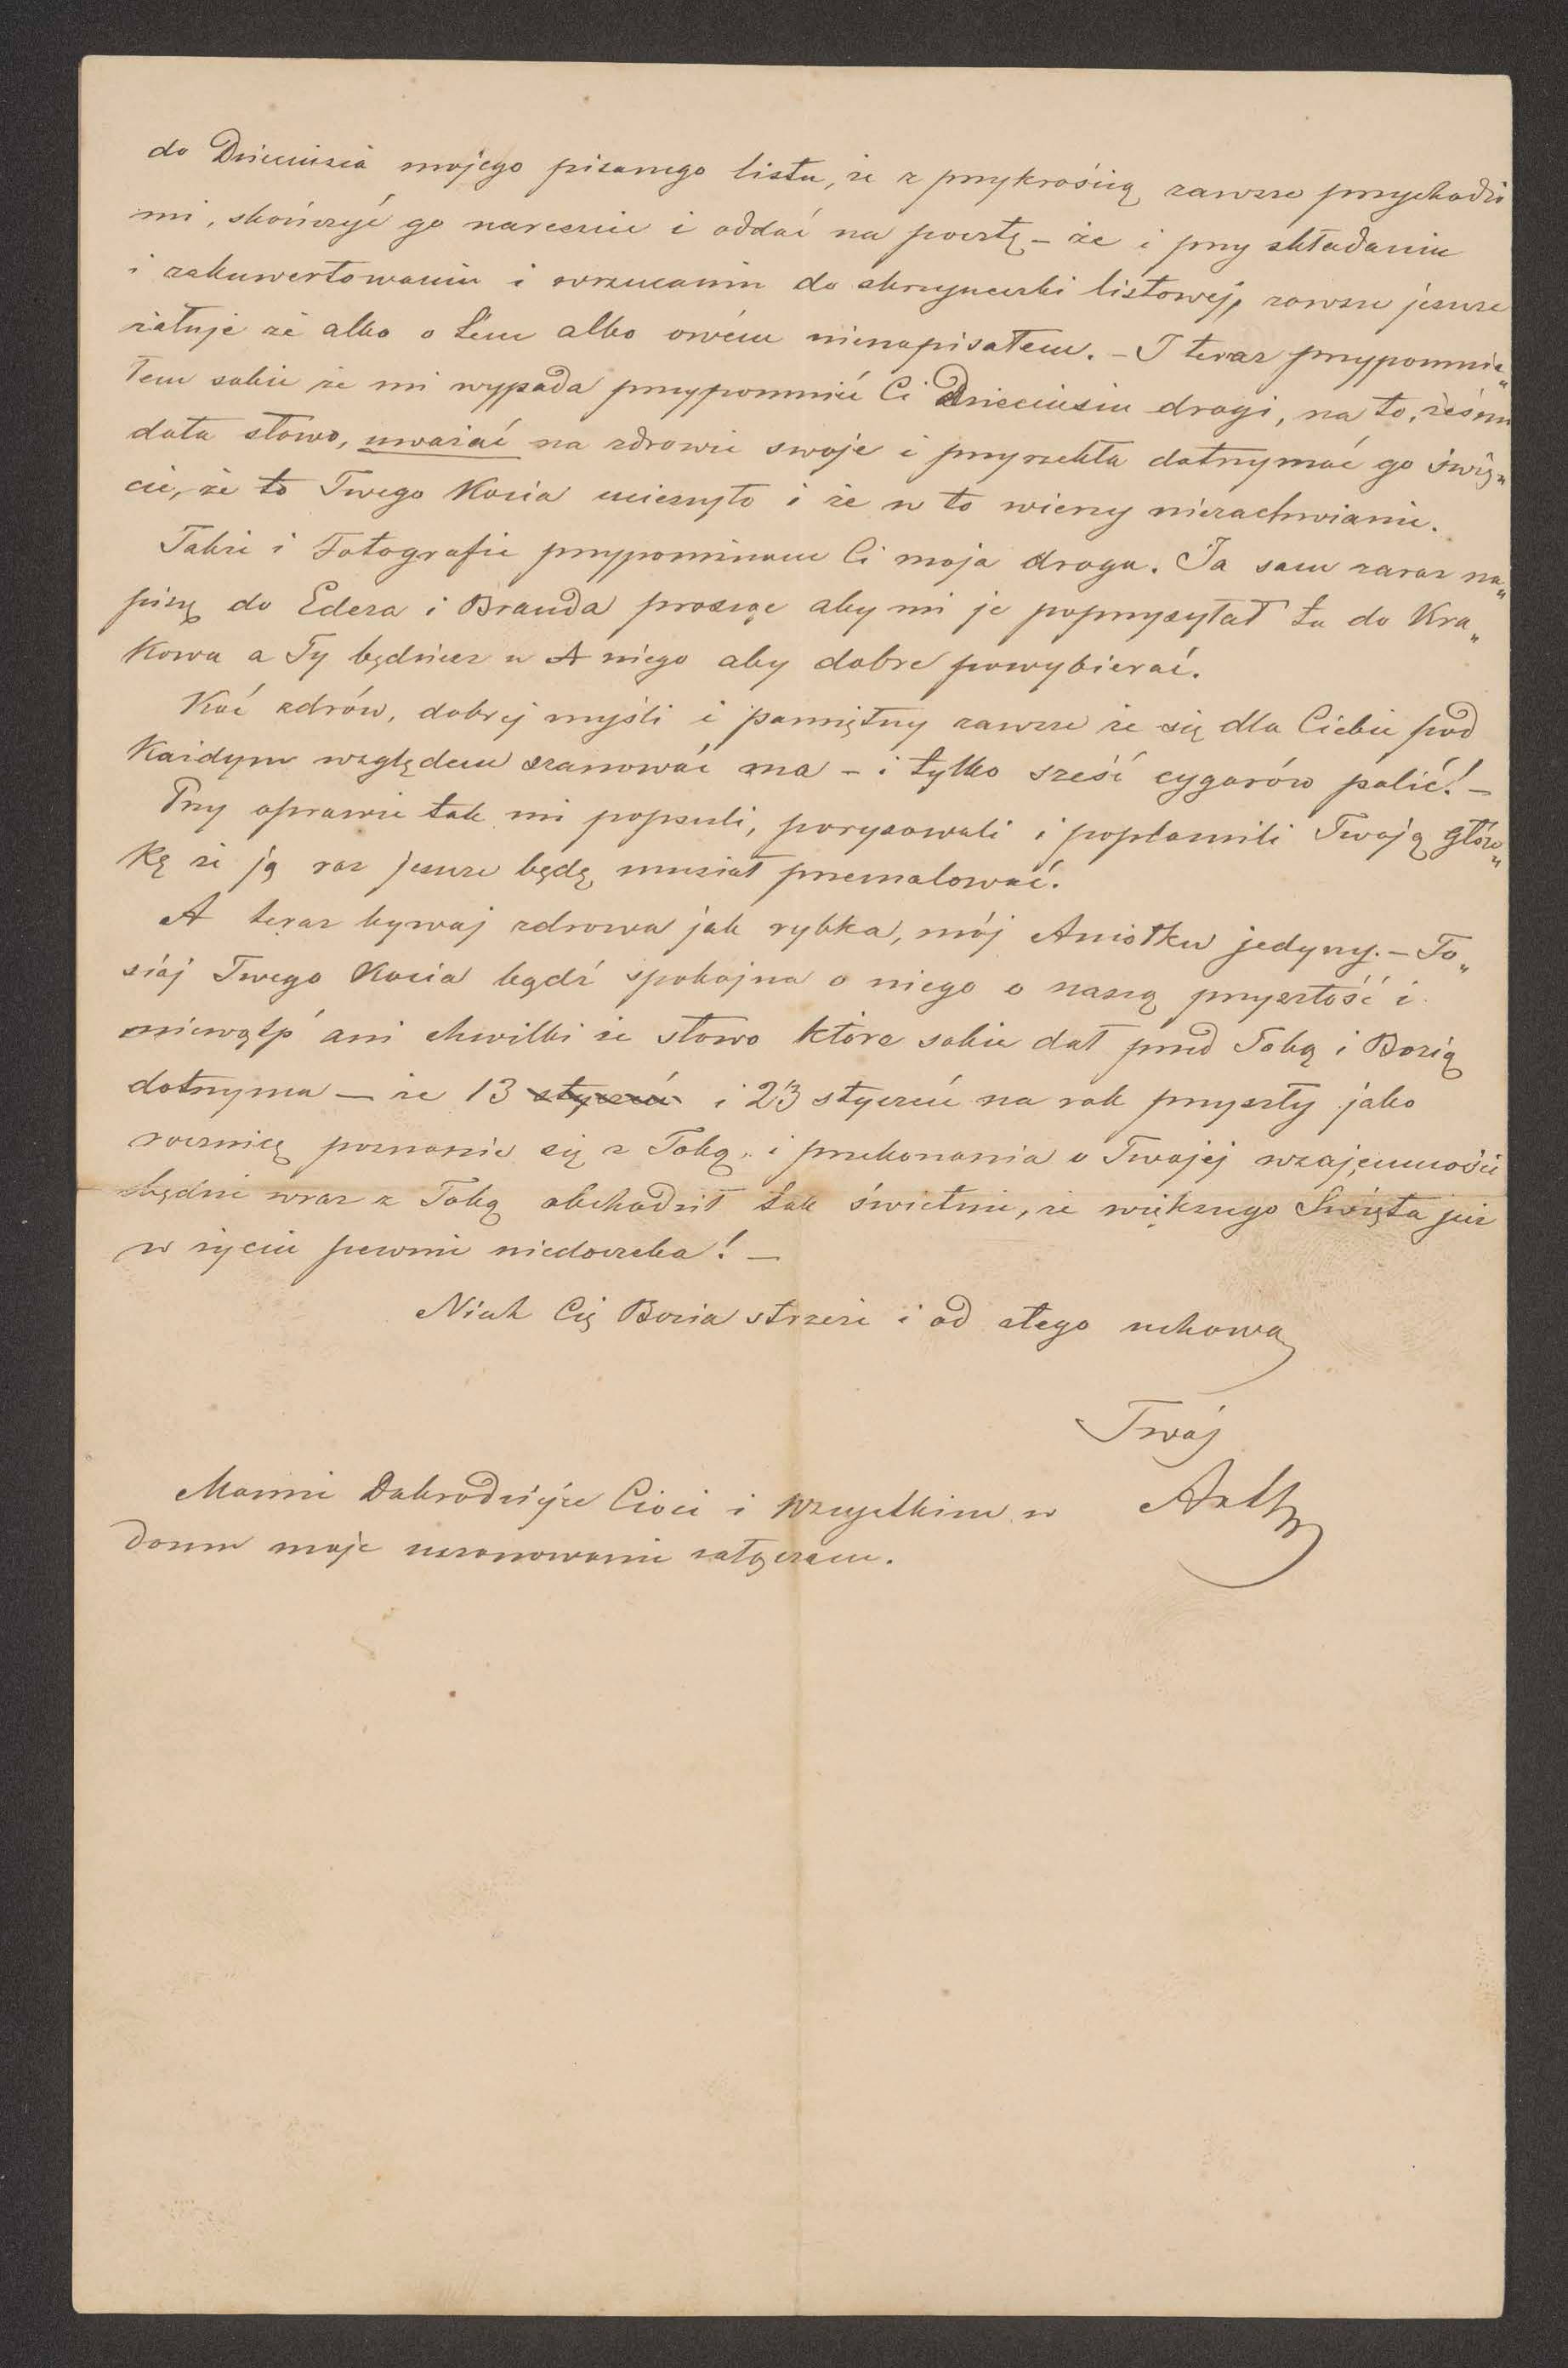 do Dzieciusia mojego pisanego listu, że z przykrością zawsze przychodzi
mi, skończyć go nareszcie i oddać na pocztę – że i przy składaniu
i zakuwertowaniu i wrzucaniu do skrzyneczki listowej, zawsze jeszcze
żałuję że albo o tem albo owém nienapisałem. – I teraz przypomnia„
łem sobie że mi wypada przypomnić Ci Dzieciusiu drogi, na to, żeś mi
dała słowo, uważać na zdrowie swoje i przyrzekła dotrzymać go świę„
cie, że to Twego Kocia ucieszyło i że w to wierzy niezachwianie.
Także i Fotografie przypominam Ci moja droga. Ja sam zaraz na„
piszę do Edera i Branda prosząc aby mi je poprzysyłał tu do Kra„
kowa a Ty będziesz u niego aby dobre powybierać.
Koć zdrów, dobrej myśli i pamiętny zawsze że się dla Ciebie pod
Każdym względem szanować ma – i tylko sześć cygarów palić! –
Przy oprawie tak mi popsuli, porysowali i poplamili Twoją głów„
kę że ją raz jeszcze będę musiał przemalować.
A teraz bywaj zdrowa jak rybka, mój Aniołku jedyny. – To„
siaj Twego Kocia bądź spokojna o niego o naszą przyszłość i
niewątp' ani chwilki że słowo które sobie dał przed Tobą i Bozią
dotrzyma – że 13 styczeń i 23 styczeń na rok przyszły jako
rocznicę poznanie się z Tobą, i przekonania o Twojej wzajemności
będzie wraz z Tobą obchodził tak świetnie, że większego Święta już
w życiu pewnie niedoczeka! –
Niech Cię Bozia strzeże i od złego uchowa
Twój
Mamie Dobrodziejce Cioci i Wszystkim w
domu moje uszanowanie załączam.